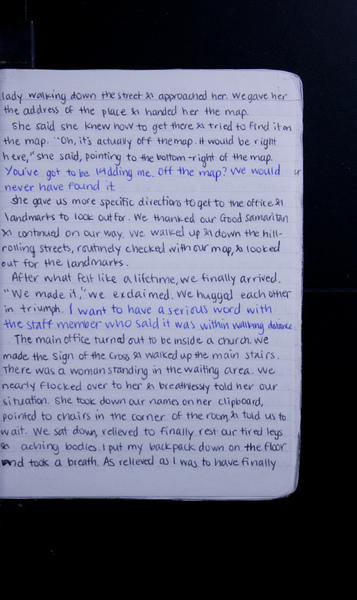 lady walking down the street & approached her. We gave her
the address of the place & handed her the map.
She said she knew how to get there & tried to find it on
the map. "Oh, it's actually off the map. It would be right
here," she said, pointing to the bottom-right of the map.
You've got to be kidding me. Off the map? We would
never have found it
She gave us more specific directions to get to the office &
landmarks to look out for. We thanked our Good Samaritan
& continued on our way. We walked up & down the hill-
rolling streets, routinely checked with our map, & looked
out for the landmarks.
After what felt like a lifetime, we finally arrived.
"We made it," we exclaimed. We hugged each other
in triumph. I want to have a serious word with
the staff member who said it was within walking distance.
The main office turned out to be inside a church. We
made the Sign of the Cross & walked up the main stairs.
There was a woman standing in the waiting area. We
nearly flocked over to her & breathlessly told her our
situation. She took down our names on her clipboard,
pointed to chairs in the corner of the room, & told us to
wait. We sat down, relieved to finally rest our tired legs
& aching bodies. I put my backpack down on the floor
and took a breath. As relieved as I was to have finally